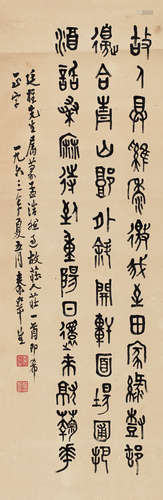 故人具雞黍邀我至田家綠樹邨
邊合青山郭外斜開軒面場圃把
酒話桑麻待到重陽日還來就菊花
先生屬篆孟浩然過故人莊一首即希
正字
三年夏五月秦咢生